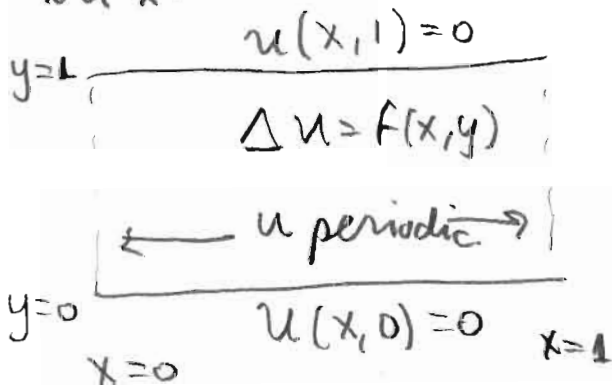 u(x,1)=0
y=1
Δu=f(x,y)
u periodic
y=0
u(x,0)=0
x=0
x=1